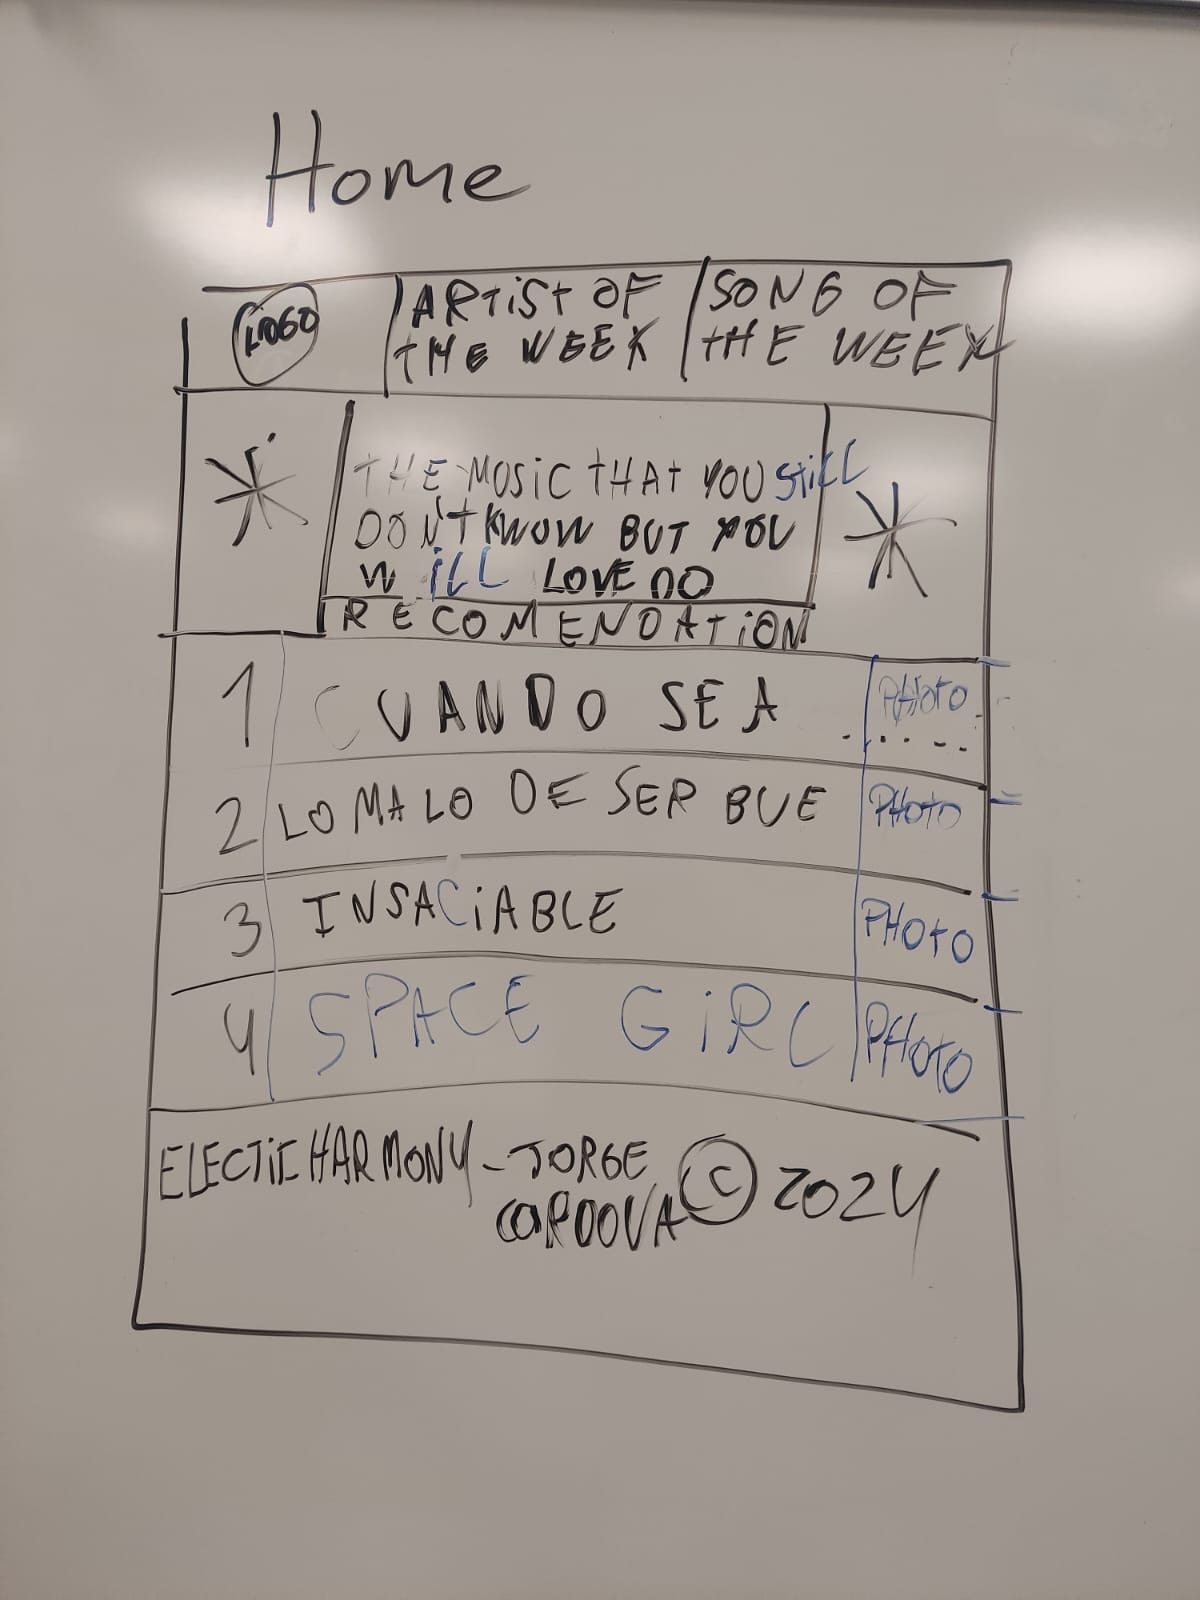 Home
LOGO
ARTIST OF
THE WEEK
SONG OF
THE WEEK
THE MUSIC THAT YOU STILL
DON'T KNOW BUT YOU
WILL LOVE DO
RECOMENDATION
1 CUANDO SEA PHOTO
2 LO MALO DE SER BUE PHOTO
3 INSACIABLE PHOTO
4 SPACE GIRL PHOTO
HARMONY - JORGE
CORDOVA © 2024